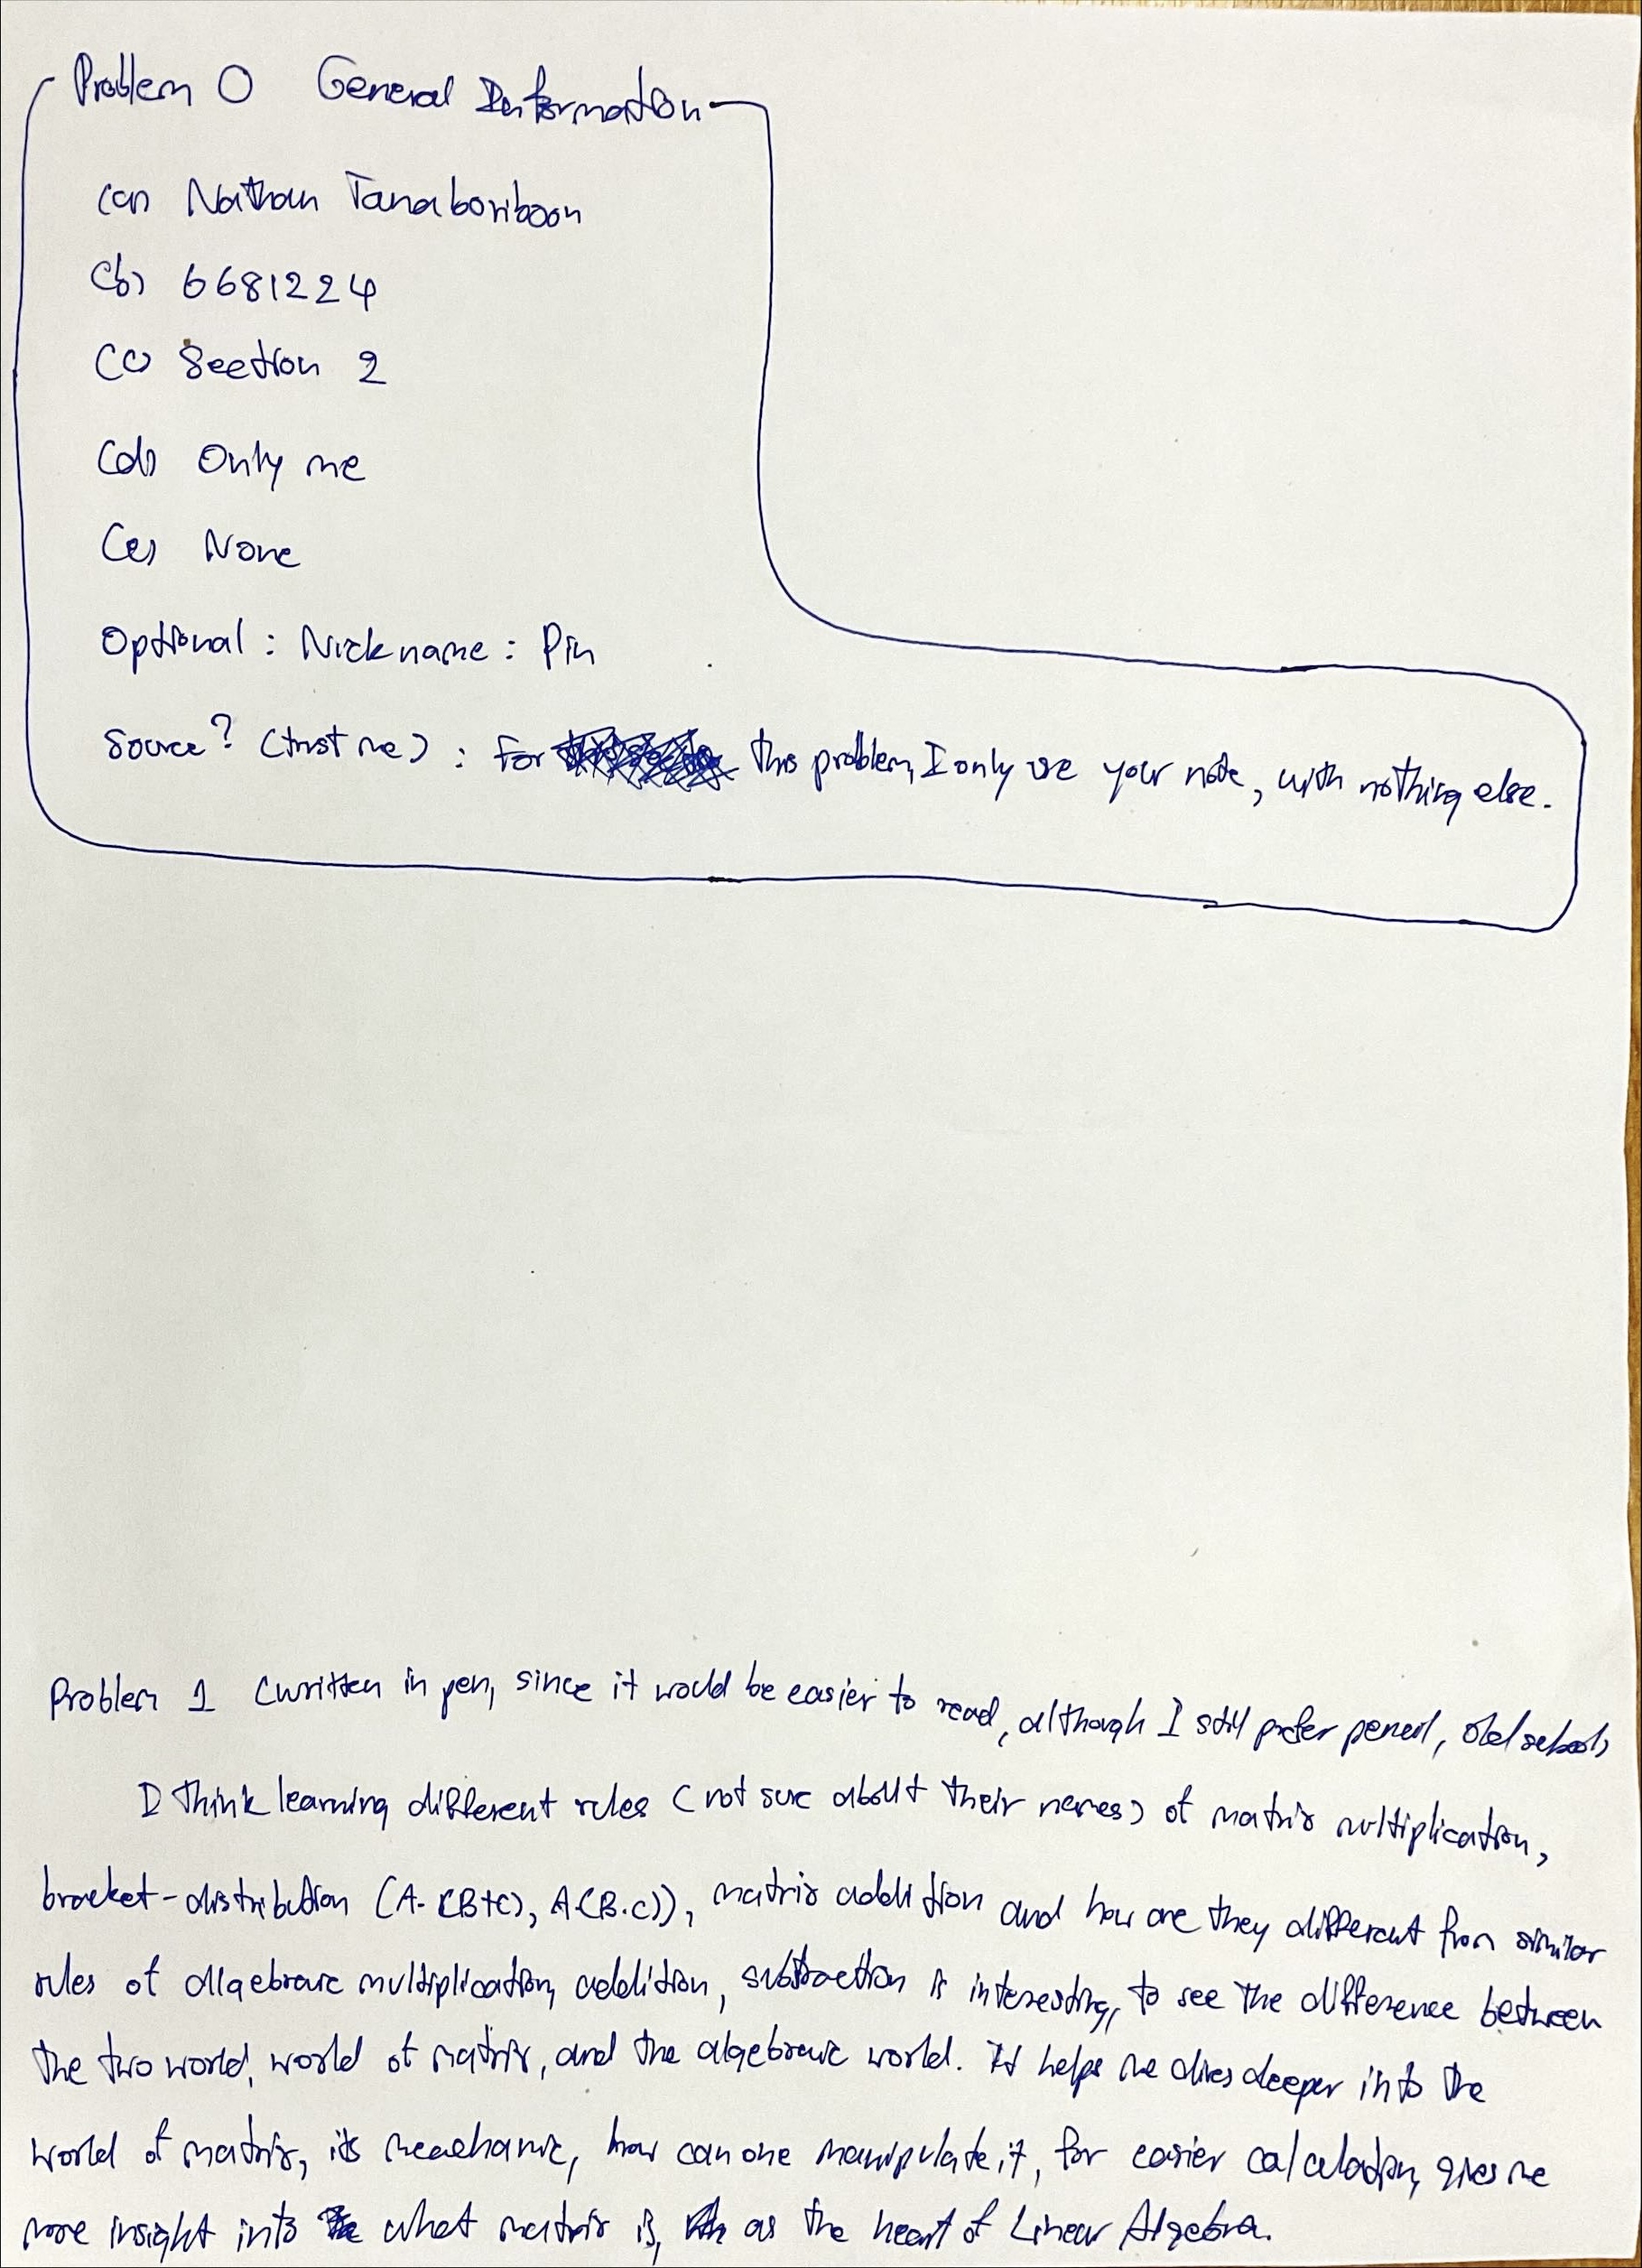 Problem 0 General Information
(a) Nathan Tanaboriboon
(b) 6681224
(c) Section 2
(d) Only me
(e) None
Optional : Nickname : Pin
Source? (trust me) : For this problem, I only use your note, with nothing else.
Problem 1 (written in pen, since it would be easier to read, although I still prefer pencil, old school)
I think learning different rules (not sure about their names) of matrix multiplication,
bracket-distribution (A·(B+C), A·(B·C)), matrix addition and how are they different from similar
rules of algebraic multiplication, addition, subtraction is interesting, to see the difference between
the two world, world of matrix, and the algebraic world. It helps me dives deeper into the
world of matrix, its meachanic, how can one manipulate it, for easier calculation, gives me
more insight into what matrix is, as the heart of Linear Algebra.